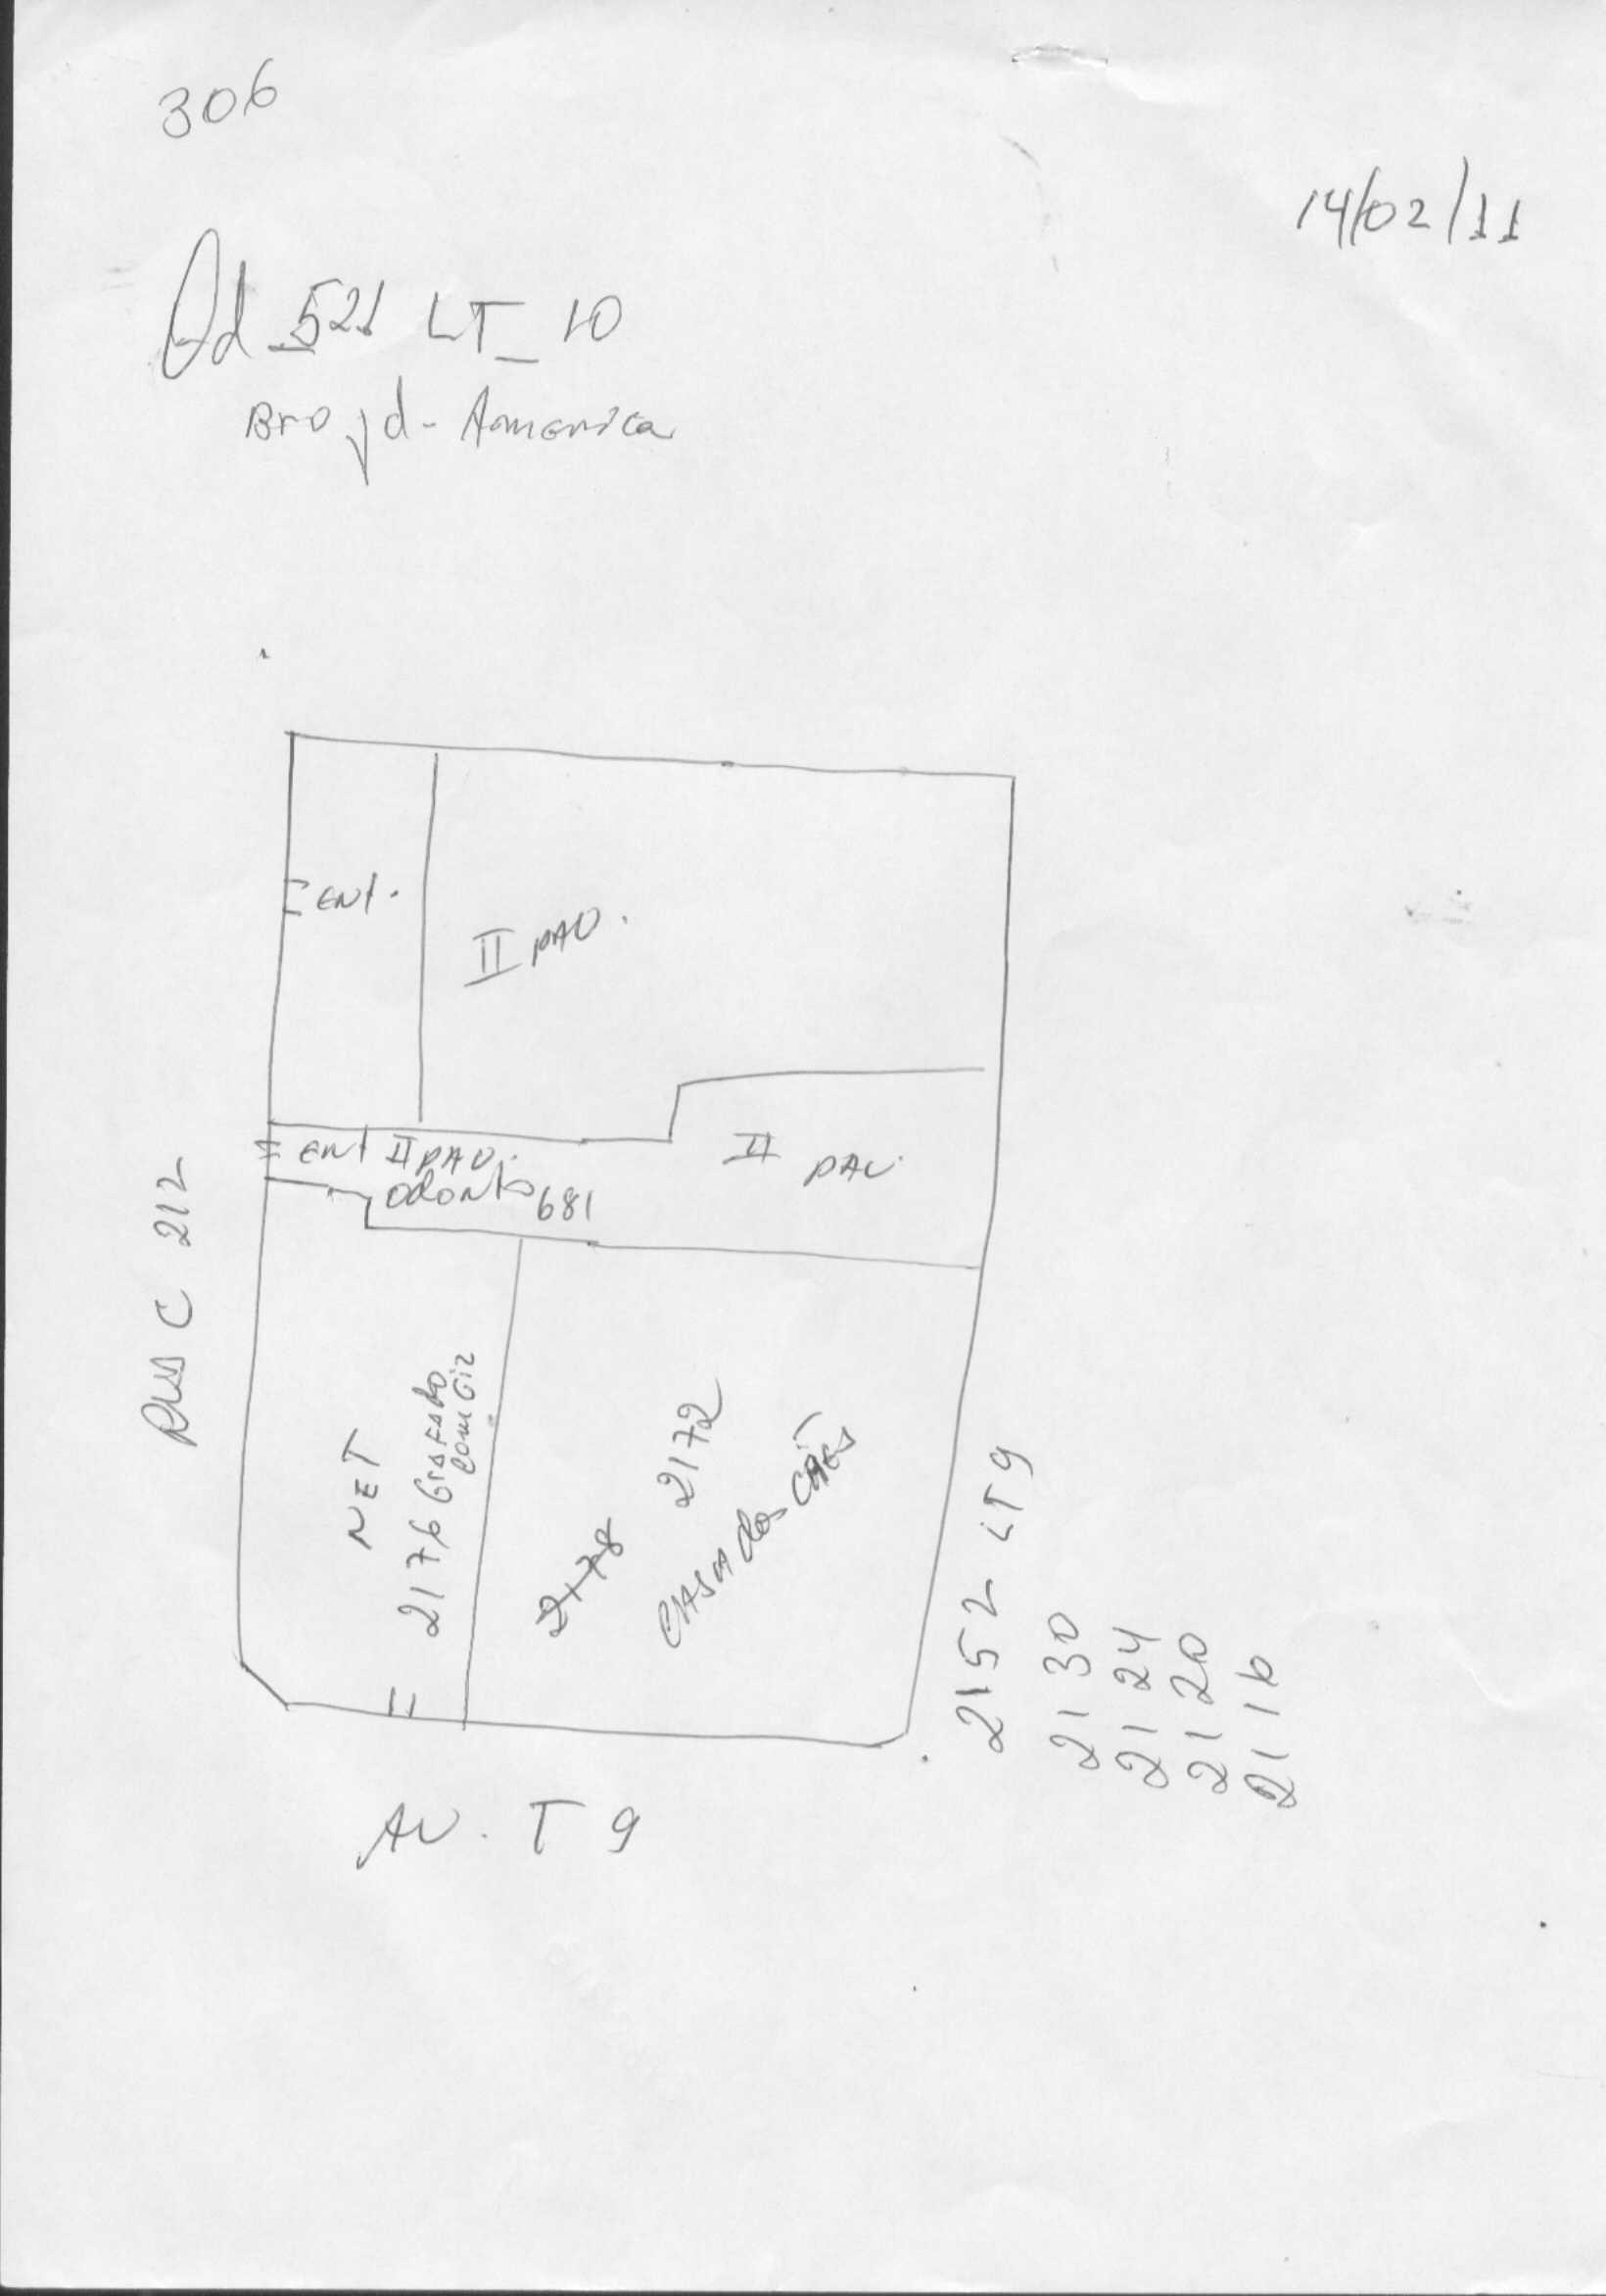 306
14/02/11
Qd_521 LT_10
Bro jd - America
Ent.
II PAV.
Ent II PAV.
Odonto 681
II PAV.
RUA C 212
NET
2176 Grafado
com Giz
2178
2172
CASA dos Cães
2152 LT9
2130
2124
2120
2116
AV. T 9